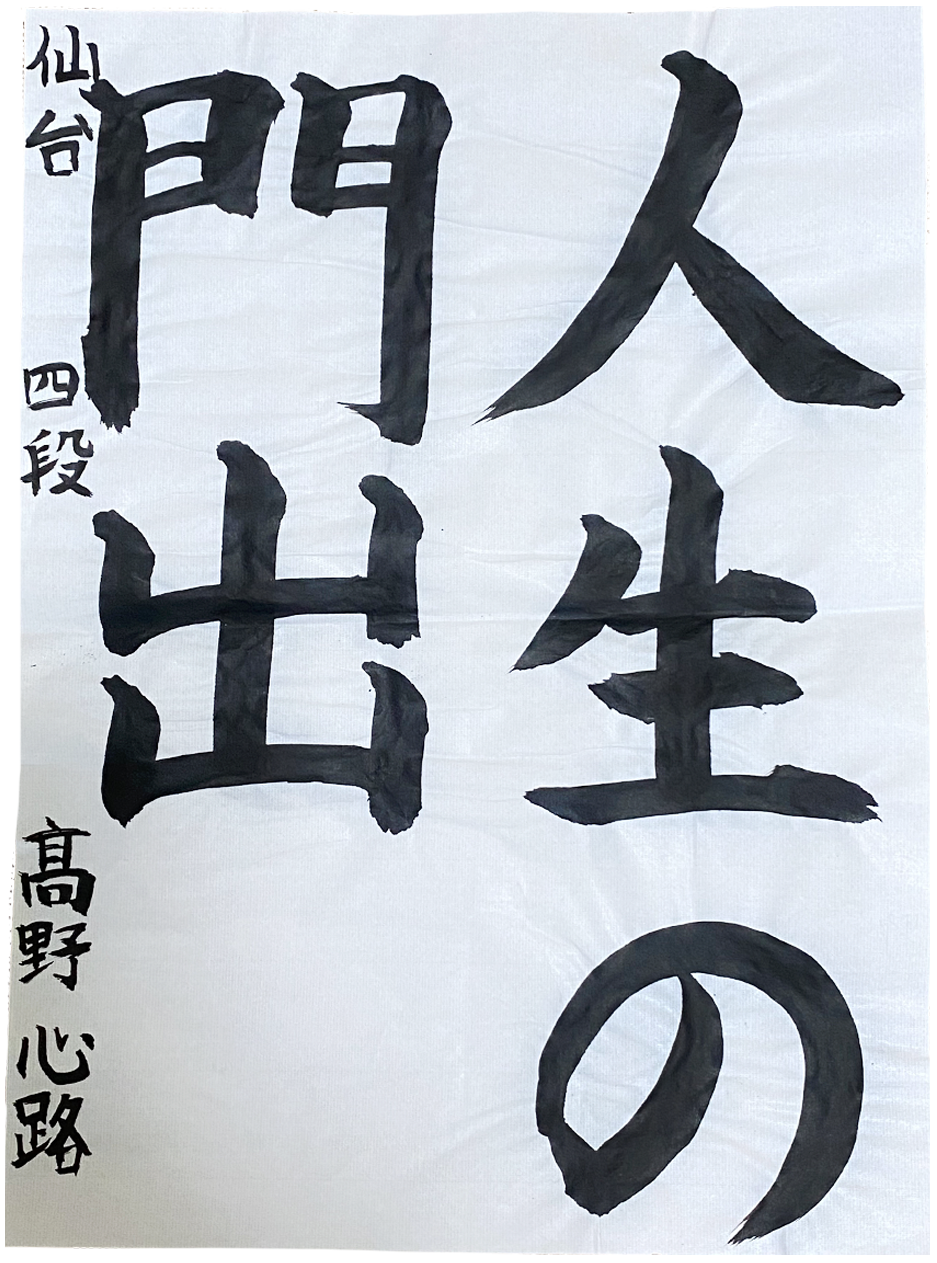 人生の
門出
仙台 四段 髙野 心路